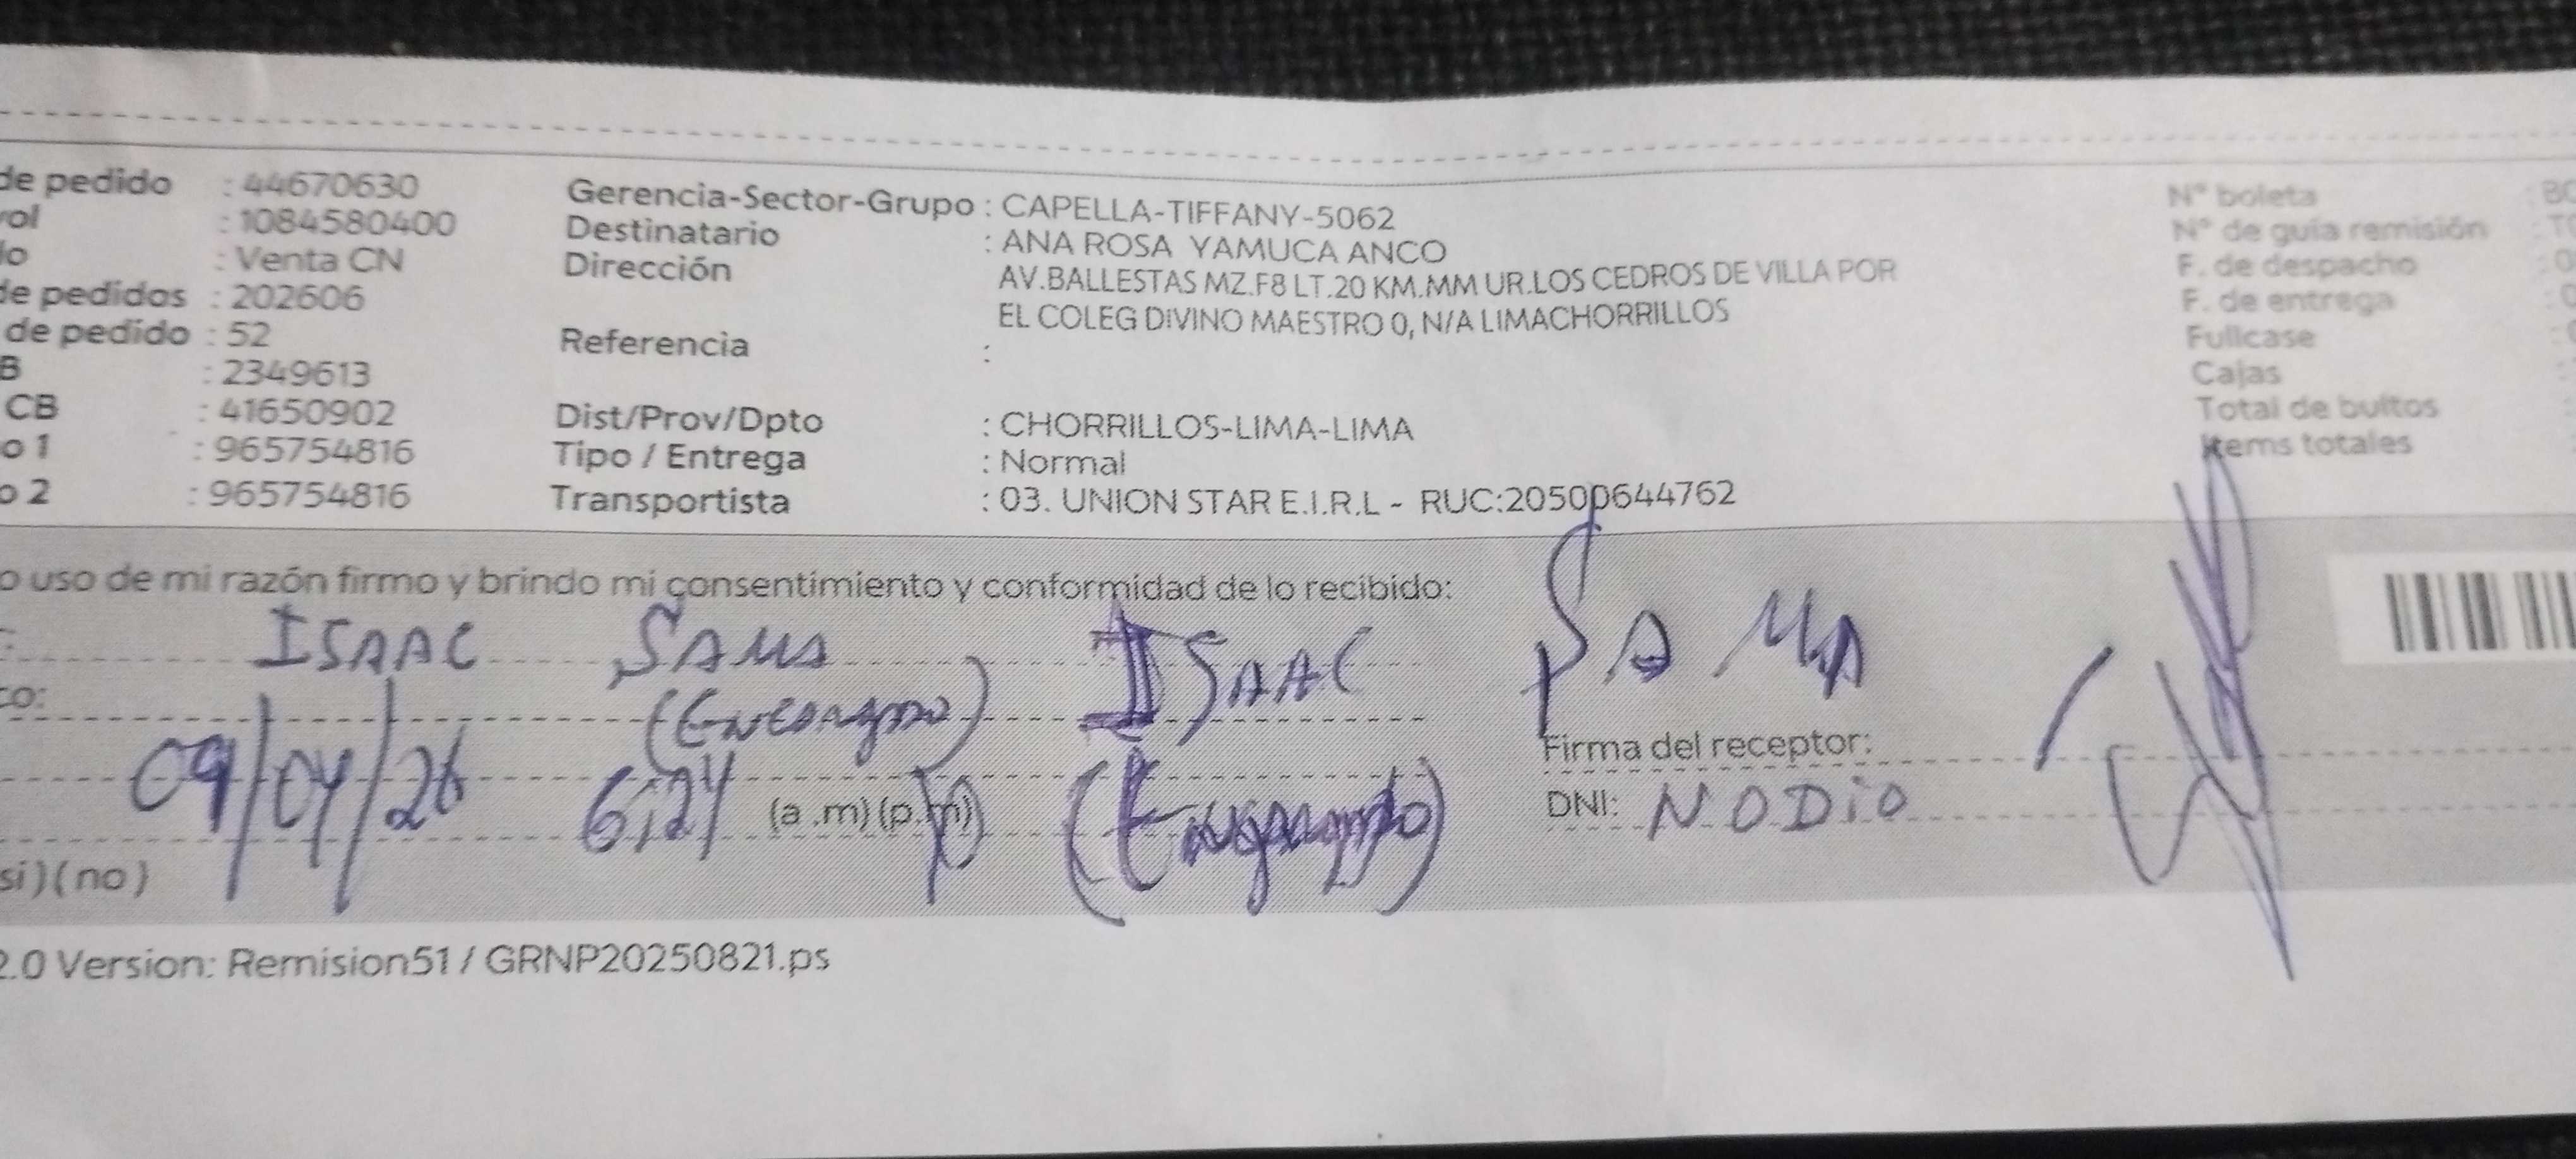 de pedido : 44670630
rol : 1084580400
do : Venta CN
de pedidos : 202606
de pedido : 52
B : 2349613
CB : 41650902
o 1 : 965754816
o 2 : 965754816
Gerencia-Sector-Grupo : CAPELLA-TIFFANY-5062
Destinatario : ANA ROSA YAMUCA ANCO
Dirección AV.BALLESTAS MZ.F8 LT.20 KM.MM UR.LOS CEDROS DE VILLA POR
EL COLEG DIVINO MAESTRO 0, N/A LIMACHORRILLOS
Referencia :
Dist/Prov/Dpto : CHORRILLOS-LIMA-LIMA
Tipo / Entrega : Normal
Transportista : 03. UNION STAR E.I.R.L - RUC:20500644762
N° boleta
N° de guía remisión
F. de despacho
F. de entrega
Fullcase
Cajas
Total de bultos
Items totales
o uso de mi razón firmo y brindo mi consentimiento y conformidad de lo recibido:
ISAAC SAMA ISAAC SAMA
co: (Encargado)
Firma del receptor:
09/04/26 6:24 (a.m) (p.m) (Encargado)
DNI: NO DIO
si ) ( no )
2.0 Version: Remision51 / GRNP20250821.ps